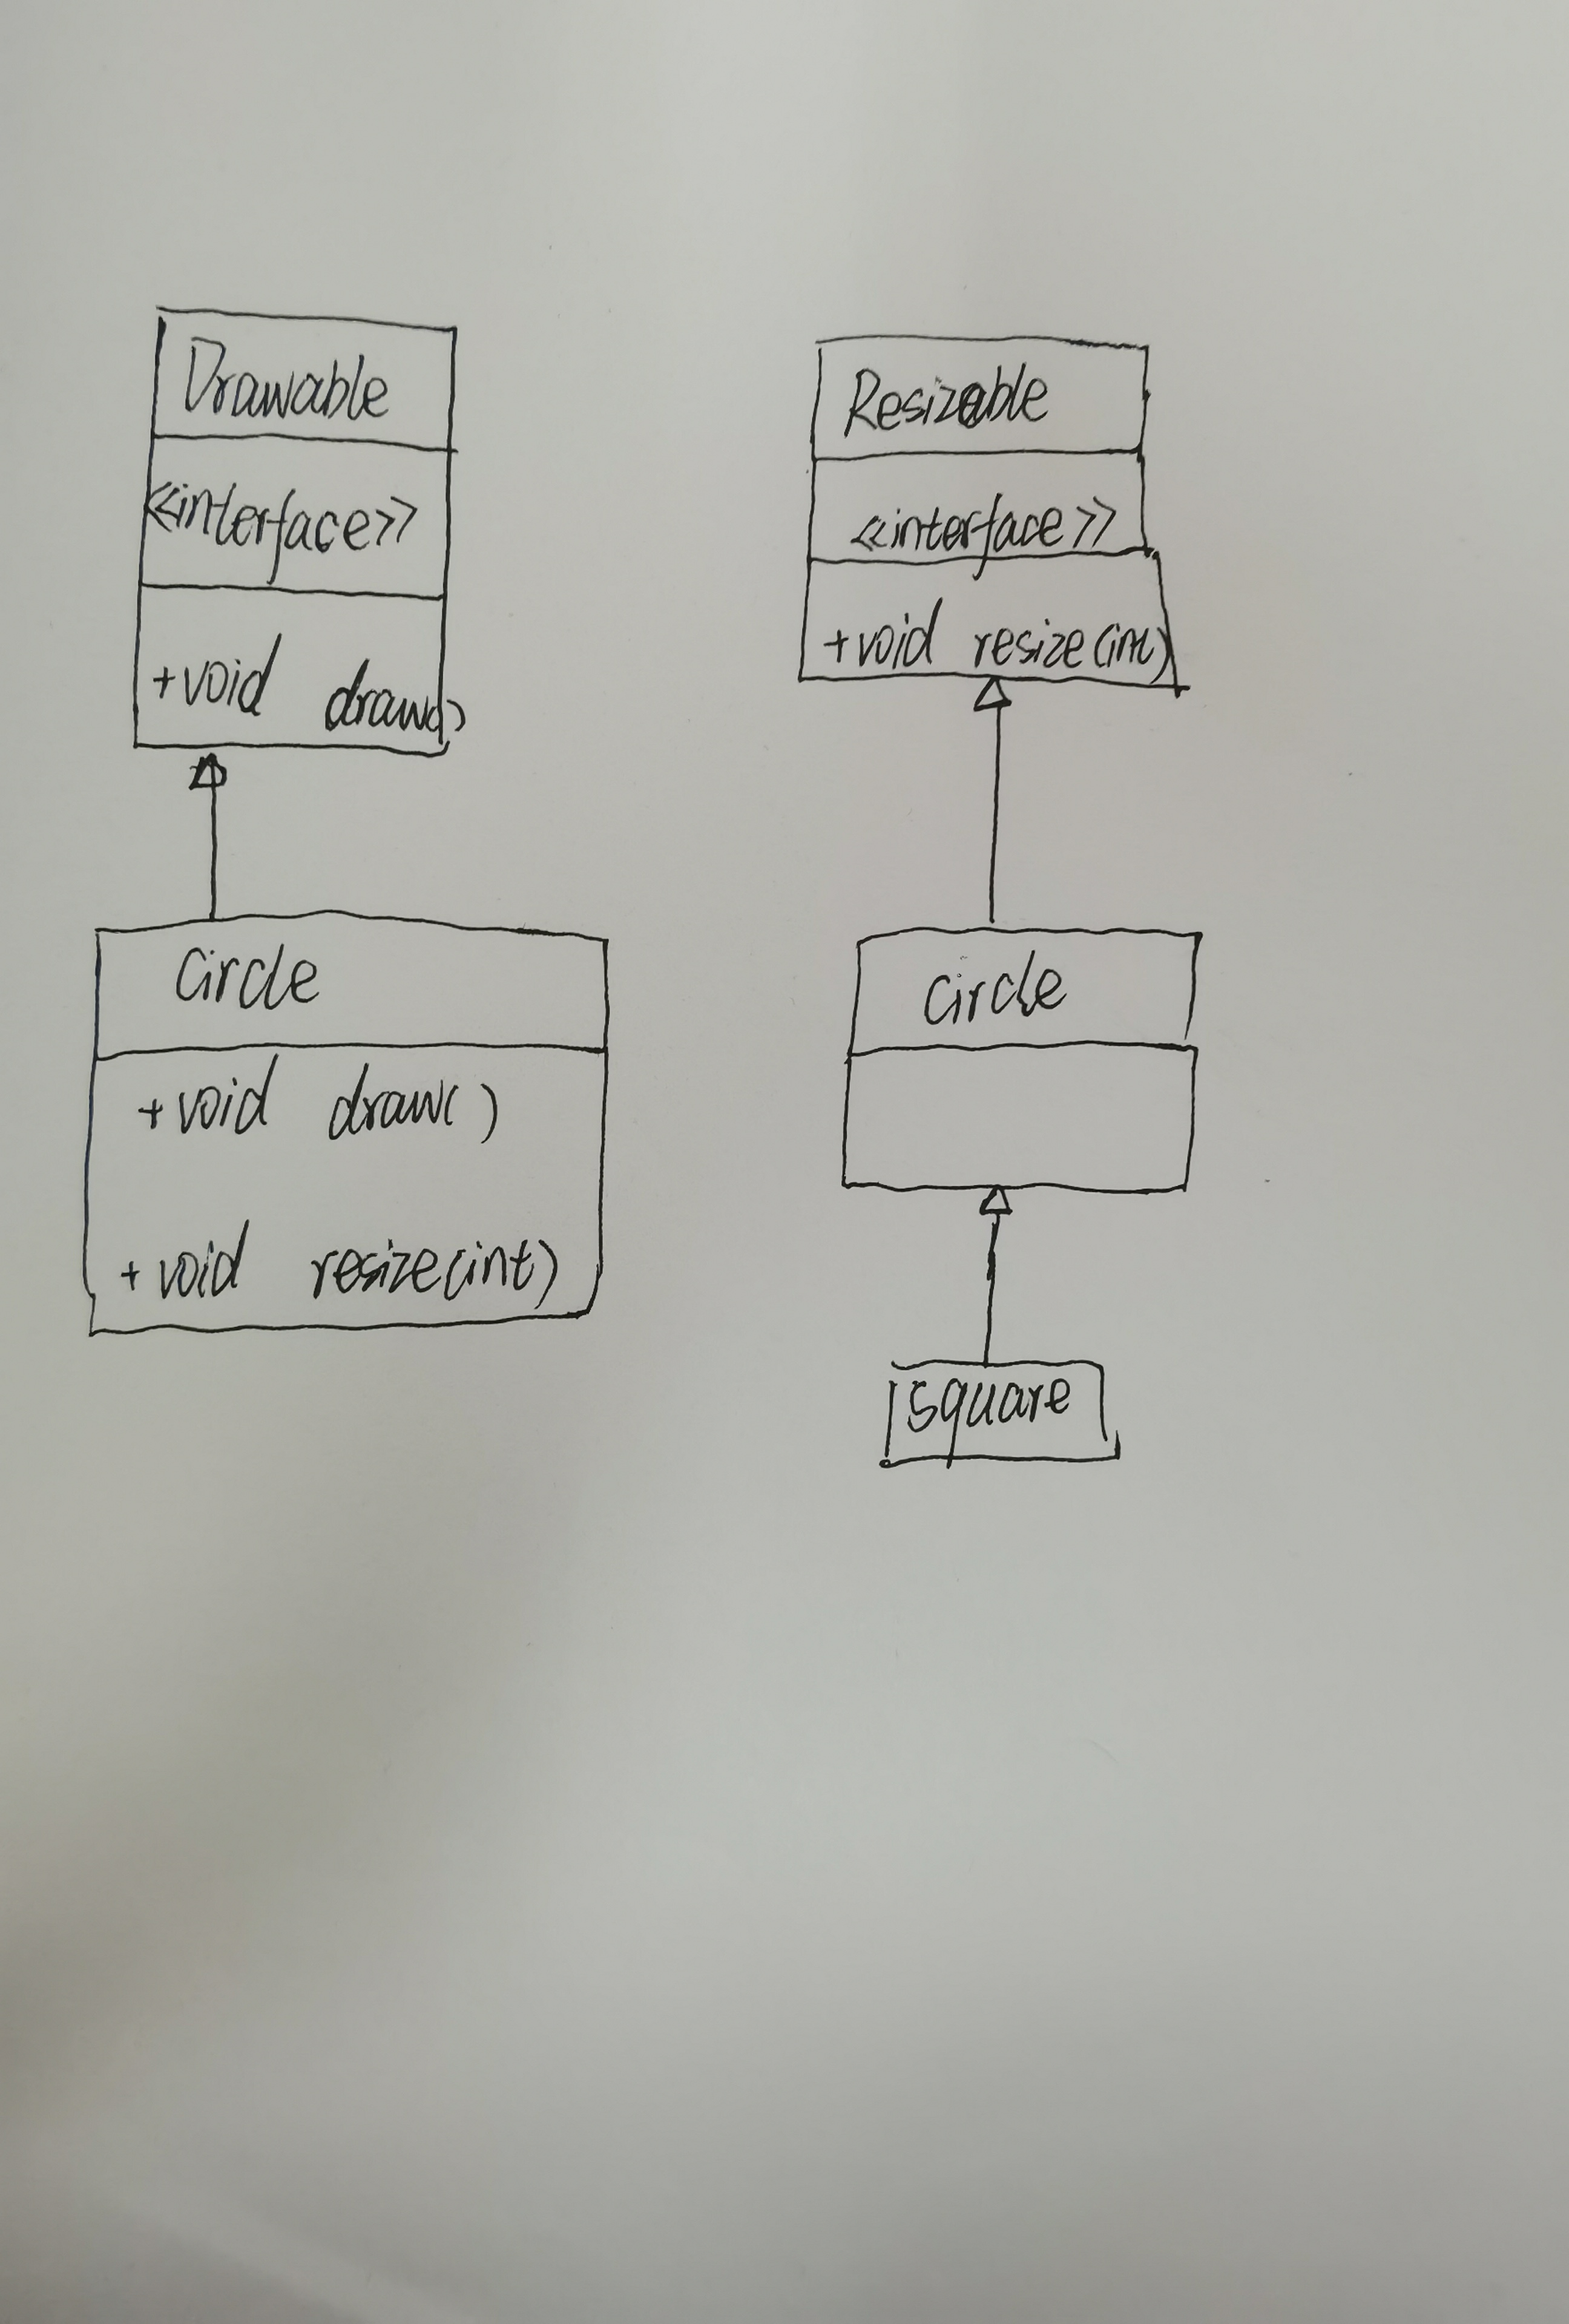 Drawable
<<interface>>
+void draw()
Circle
+void draw()
+void resize(int)
Resizable
<<interface>>
+void resize(int)
Circle
square